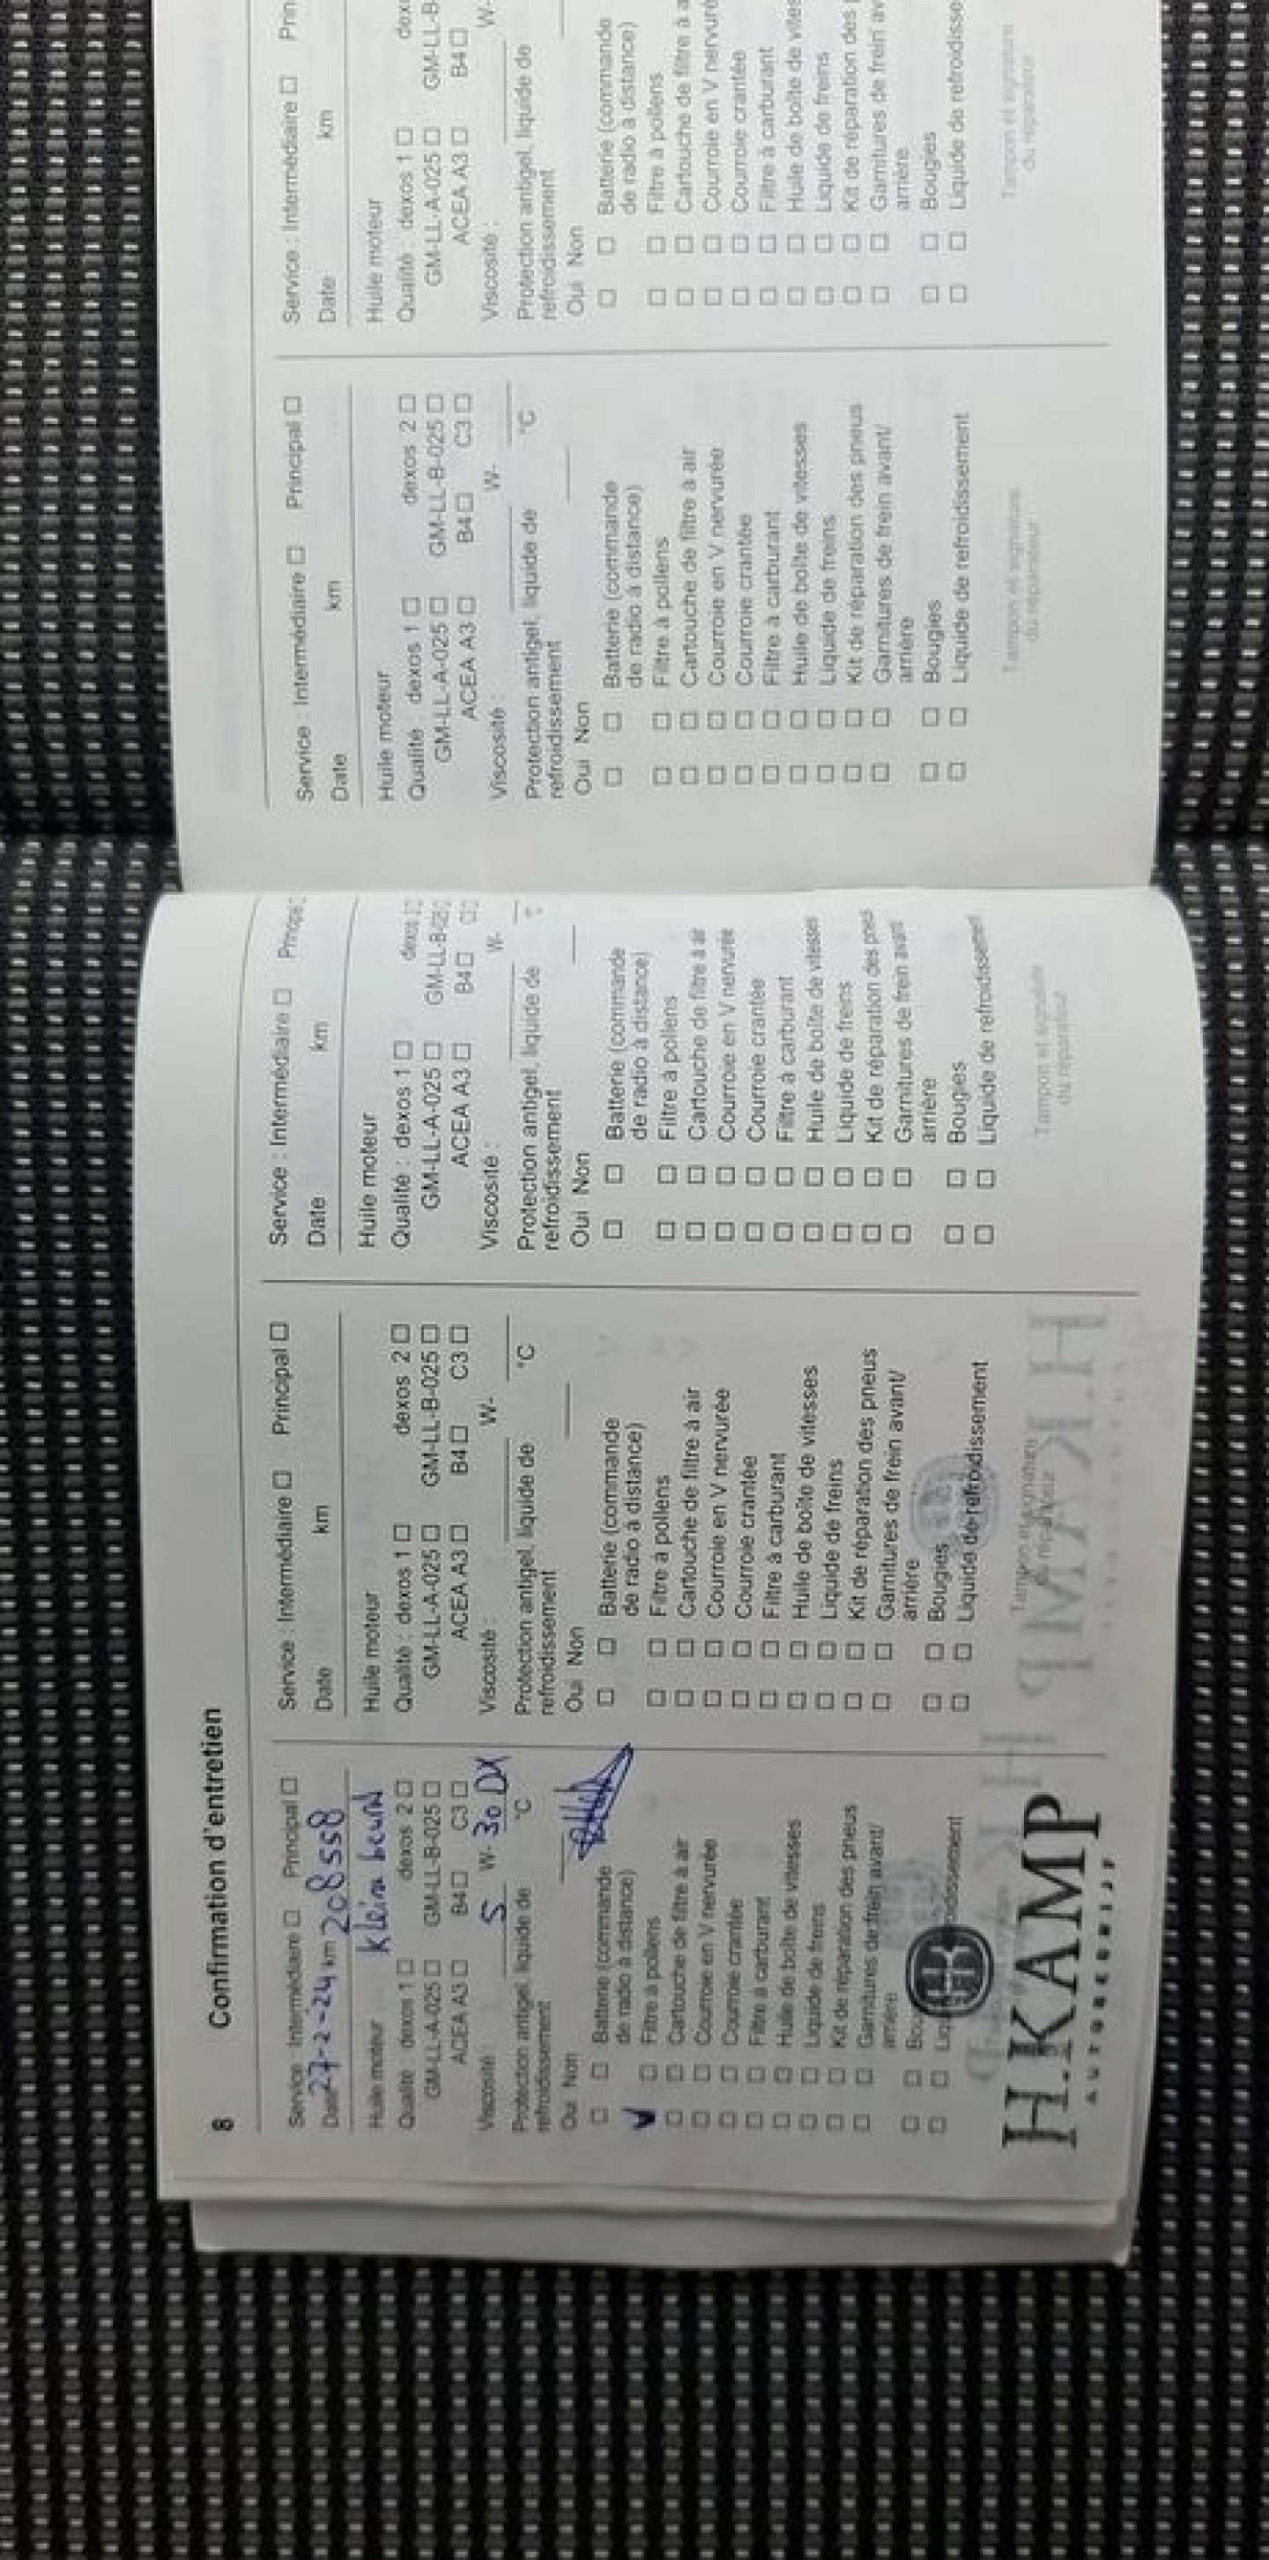 8 Confirmation d'entretien
Service : Intermédiaire □ Principal □
Date 27-2-24 km 208558
Huile moteur kleine beurt
Qualité : dexos 1 □ dexos 2 □
GM-LL-A-025 □ GM-LL-B-025 □
ACEA A3 □ B4 □ C3 □
Viscosité : 5 W- 30 DX
Protection antigel, liquide de
refroidissement °C
Oui Non
□ □ Batterie (commande
de radio à distance)
✓ □ Filtre à pollens
□ □ Cartouche de filtre à air
□ □ Courroie en V nervurée
□ □ Courroie crantée
□ □ Filtre à carburant
□ □ Huile de boîte de vitesses
□ □ Liquide de freins
□ □ Kit de réparation des pneus
□ □ Garnitures de frein avant/
arrière
□ □ Bou
□ □ Liq oidissement
H.KAMP
AUTOBEDRIJF
Service : Intermédiaire □ Principal □
Date km
Huile moteur
Qualité : dexos 1 □ dexos 2 □
GM-LL-A-025 □ GM-LL-B-025 □
ACEA A3 □ B4 □ C3 □
Viscosité : W-
Protection antigel, liquide de
refroidissement °C
Oui Non
□ □ Batterie (commande
de radio à distance)
□ □ Filtre à pollens
□ □ Cartouche de filtre à air
□ □ Courroie en V nervurée
□ □ Courroie crantée
□ □ Filtre à carburant
□ □ Huile de boîte de vitesses
□ □ Liquide de freins
□ □ Kit de réparation des pneus
□ □ Garnitures de frein avant/
arrière
□ □ Bougies
□ □ Liquide de refroidissement
Tampon et signature
du réparateur
Service : Intermédiaire □ Princip
Date km
Huile moteur
Qualité : dexos 1 □ dexos 2 □
GM-LL-A-025 □ GM-LL-B-025 □
ACEA A3 □ B4 □ C3 □
Viscosité : W-
Protection antigel, liquide de
refroidissement °C
Oui Non
□ □ Batterie (commande
de radio à distance)
□ □ Filtre à pollens
□ □ Cartouche de filtre à air
□ □ Courroie en V nervurée
□ □ Courroie crantée
□ □ Filtre à carburant
□ □ Huile de boîte de vitesses
□ □ Liquide de freins
□ □ Kit de réparation des pneus
□ □ Garnitures de frein avant/
arrière
□ □ Bougies
□ □ Liquide de refroidissement
Tampon et signature
du réparateur
Service : Intermédiaire □ Principal □
Date km
Huile moteur
Qualité : dexos 1 □ dexos 2 □
GM-LL-A-025 □ GM-LL-B-025 □
ACEA A3 □ B4 □ C3 □
Viscosité : W-
Protection antigel, liquide de
refroidissement °C
Oui Non
□ □ Batterie (commande
de radio à distance)
□ □ Filtre à pollens
□ □ Cartouche de filtre à air
□ □ Courroie en V nervurée
□ □ Courroie crantée
□ □ Filtre à carburant
□ □ Huile de boîte de vitesses
□ □ Liquide de freins
□ □ Kit de réparation des pneus
□ □ Garnitures de frein avant/
arrière
□ □ Bougies
□ □ Liquide de refroidissement
Tampon et signature
du réparateur
Service : Intermédiaire □ Prin
Date km
Huile moteur
Qualité : dexos 1 □ dex
GM-LL-A-025 □ GM-LL-B
ACEA A3 □ B4 □
Viscosité : W-
Protection antigel, liquide de
refroidissement
Oui Non
□ □ Batterie (commande
de radio à distance)
□ □ Filtre à pollens
□ □ Cartouche de filtre à a
□ □ Courroie en V nervuré
□ □ Courroie crantée
□ □ Filtre à carburant
□ □ Huile de boîte de vites
□ □ Liquide de freins
□ □ Kit de réparation des
□ □ Garnitures de frein av
arrière
□ □ Bougies
□ □ Liquide de refroidisse
Tampon et signature
du réparateur